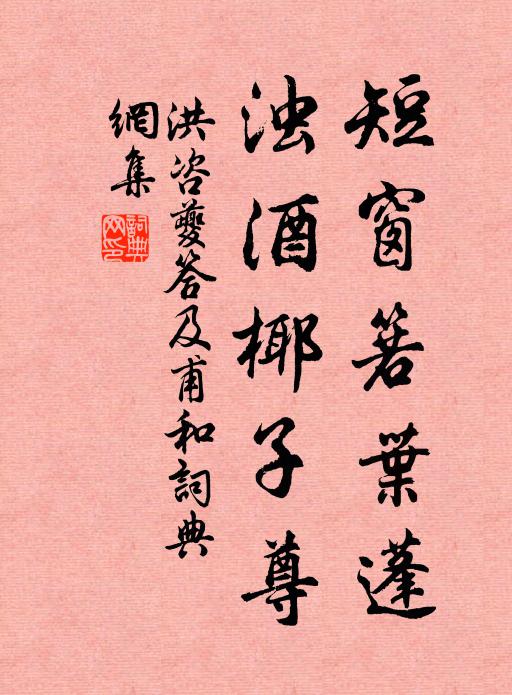 短窗箬葉蓬
浊酒椰子尊
洪咨夔答及甫和詞典
網集
詞典网印